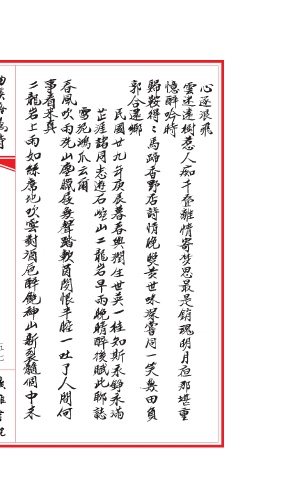 心逐浪飛
雲迷遠樹惹人痴千疊離情寄夢思最是銷魂明月夜那堪重
憶醉吟時
歸鞍得得馬蹄香野店詩情晚興芳世味深嘗同一笑幾田負
郭合還鄉
民國廿九年庚辰暮春與潤生世英一桂知斯永錚永滿
芷涯諸同志遊石磴山二龍岩早雨晚晴醉後賦此聊誌
雪泥鴻爪云爾
春風吹雨洗山塵蠟屐無聲踏軟茵閑恨半腔一吐了人間何
事看來真
二龍岩上雨如絲席地吹雲對酒卮醉倒神山新裂髓個中未
五七